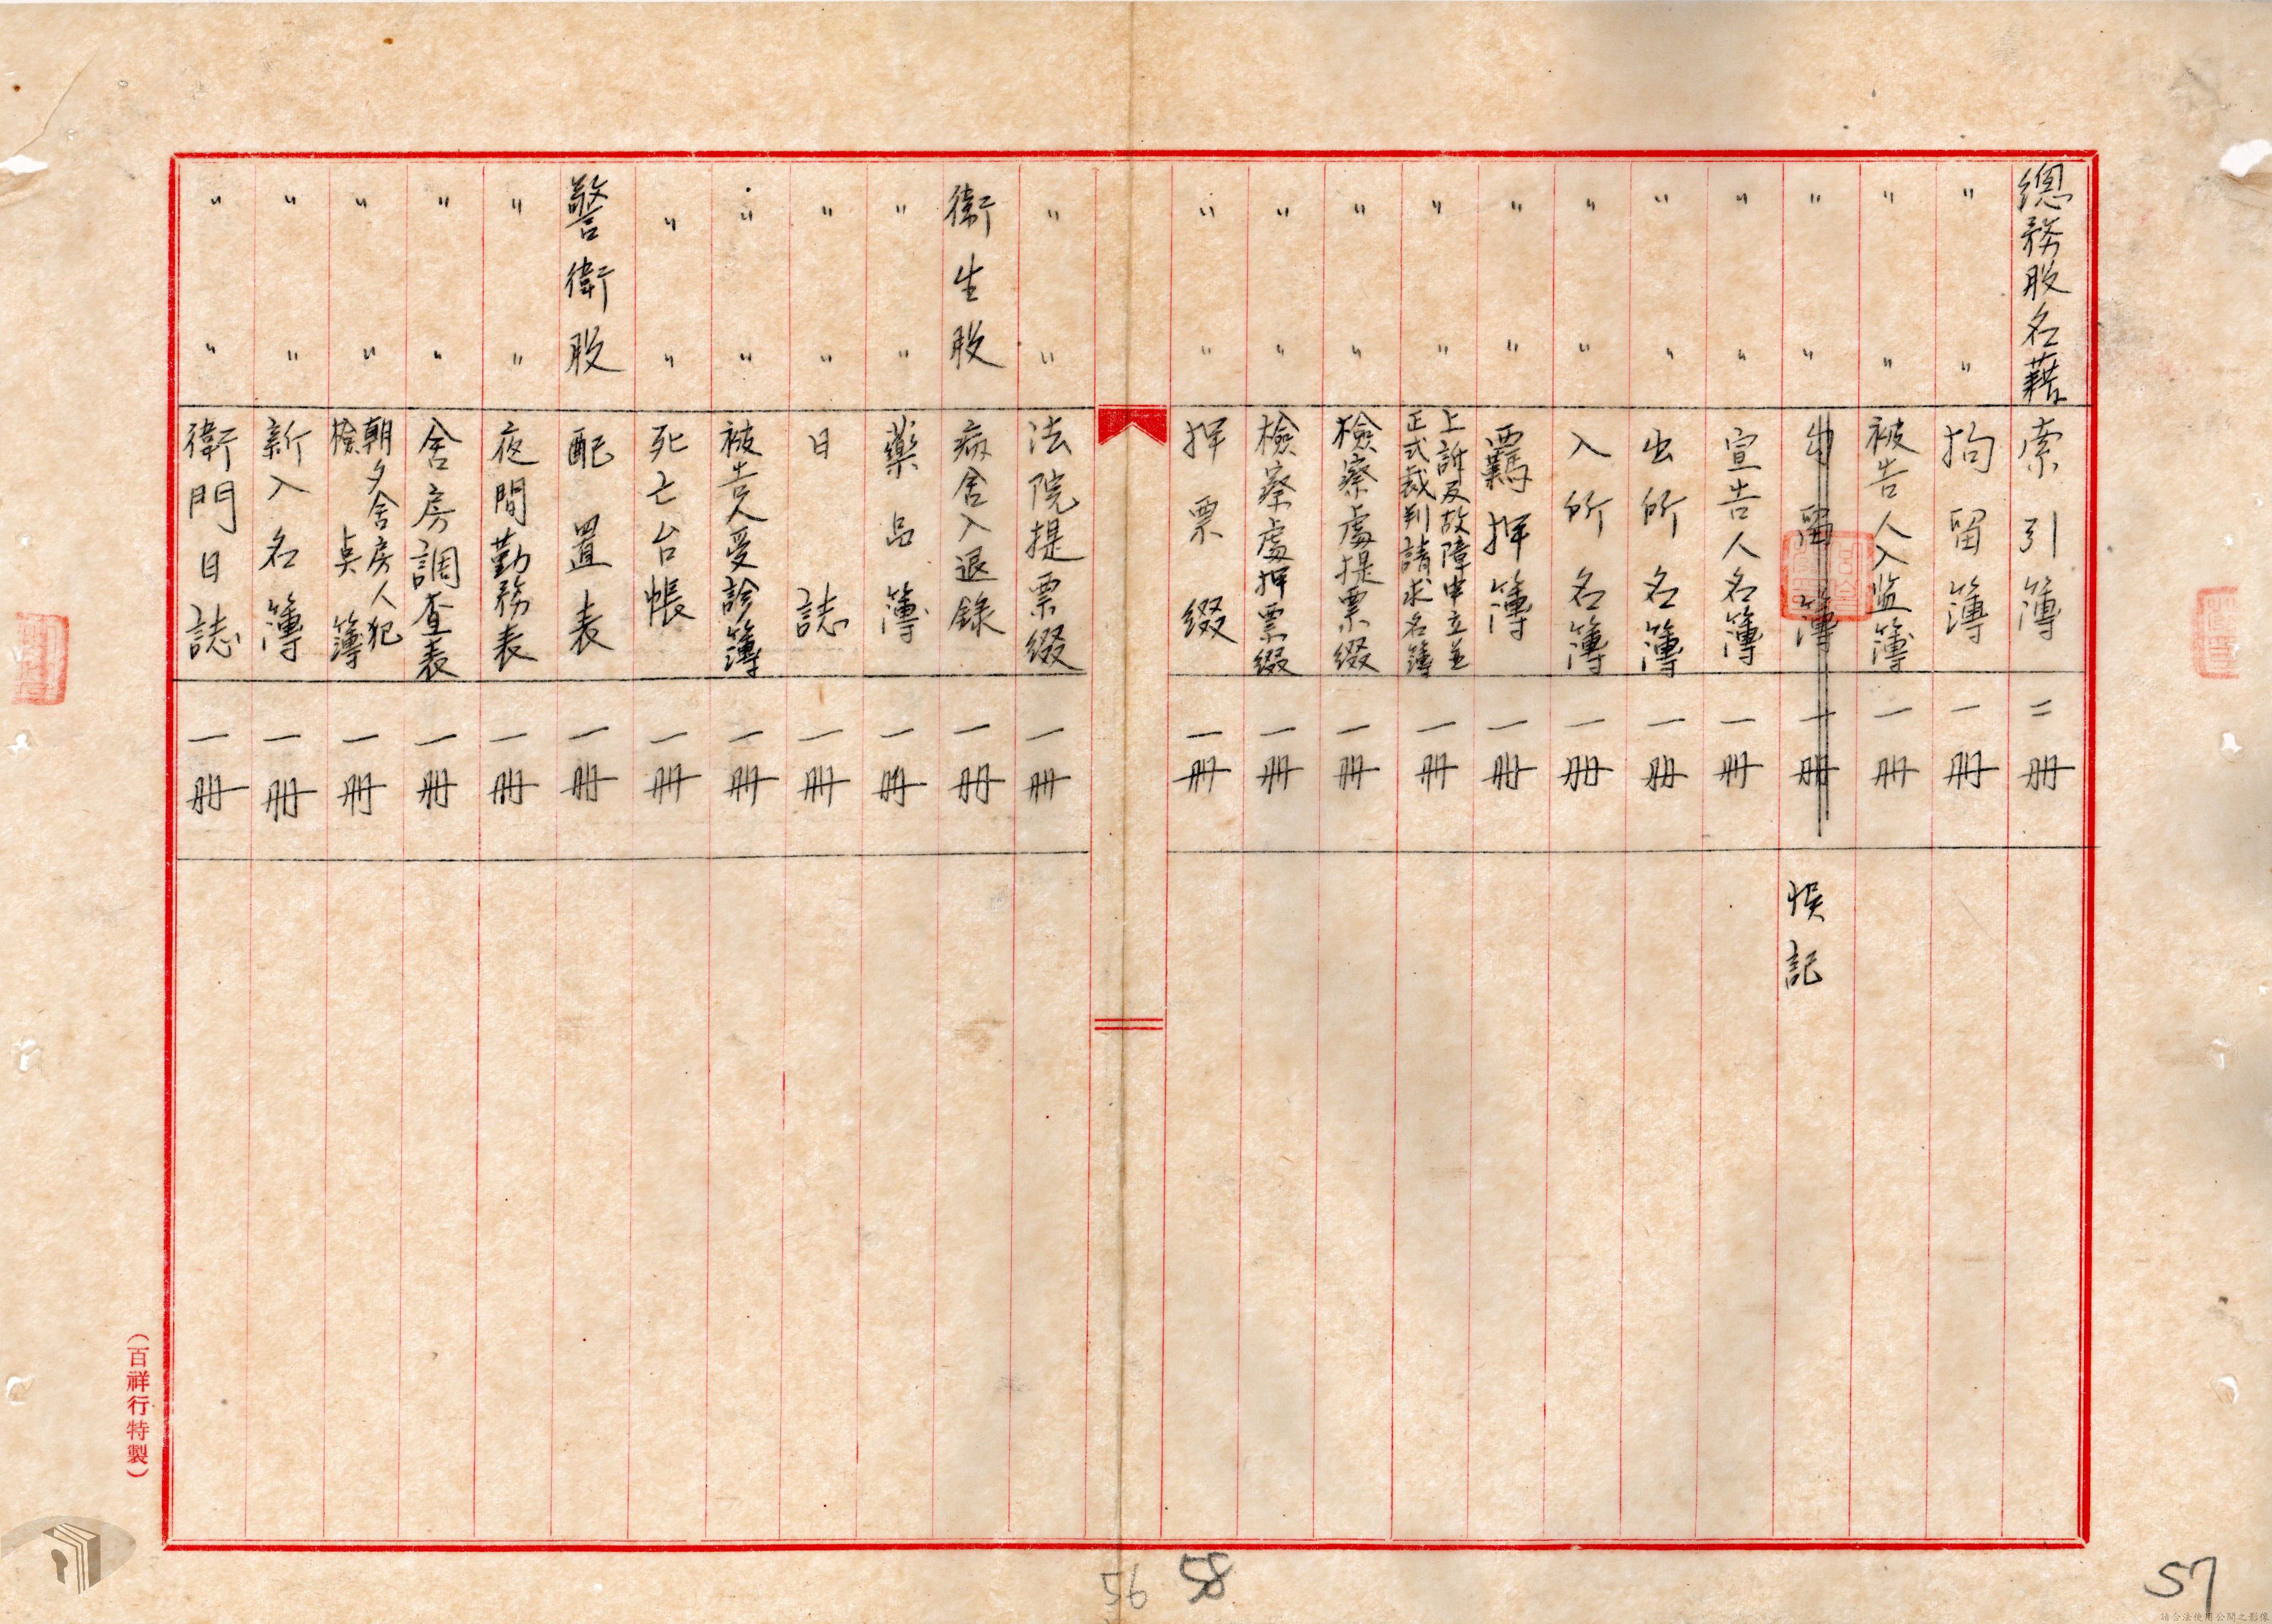 總務股名藉 索引簿 二冊
〃 〃 拘留簿 一冊
〃 〃 被告人入监簿 一冊
〃 〃 出留簿 一冊 悞記
〃 〃 宣告人名簿 一冊
〃 〃 出所名簿 一冊
〃 〃 入所名簿 一冊
〃 〃 羈押簿 一冊
〃 〃 上訴及故障申立並正式裁判請求名簿 一冊
〃 〃 檢察處提票綴 一冊
〃 〃 檢察處押票綴 一冊
〃 〃 押票綴 一冊
〃 〃 法院提票綴 一冊
衛生股 病舍入退錄 一冊
〃 〃 藥品簿 一冊
〃 〃 日誌 一冊
〃 〃 被告人受診簿 一冊
〃 〃 死亡台帳 一冊
警衛股 配置表 一冊
〃 〃 夜間勤務表 一冊
〃 〃 舍房調查表 一冊
〃 〃 朝夕舍房人犯檢点簿 一冊
〃 〃 新入名簿 一冊
〃 〃 衛門日誌 一冊
（百祥行特製）
56
58
57
請合法使用公開之影像